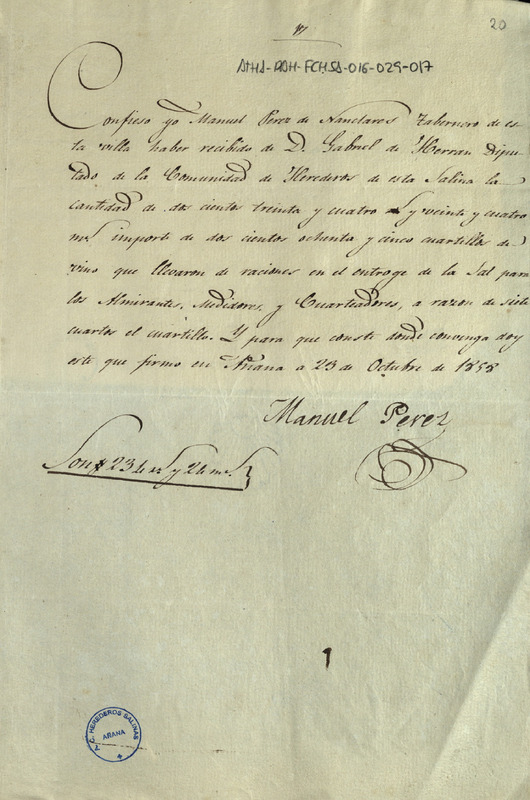 20
ATHA-DAH-FCHSA-016-029-017
Confieso yo Manuel Perez de Nanclares Tabernero de es-
ta villa haber recibido de D. Gabriel de Herran Dipu-
tado de la Comunidad de Herederos de esta Salina la
cantidad de dos cientos treinta y cuatro y veinte y cuatro
mrs importe de dos cientos ochenta y cinco cuartillos de
vino que llevaron de raciones en el entroge de la Sal para
los Almirantes, Medidores, y Cuarteadores, a razon de siete
cuartos el cuartillo. Y para que conste donde convenga doy
este que firmo en Añana a 23 de Octubre de 1858
Manuel Perez
Son 234 rs y 24 mrs
1
C. HEREDEROS SALINAS
AÑANA